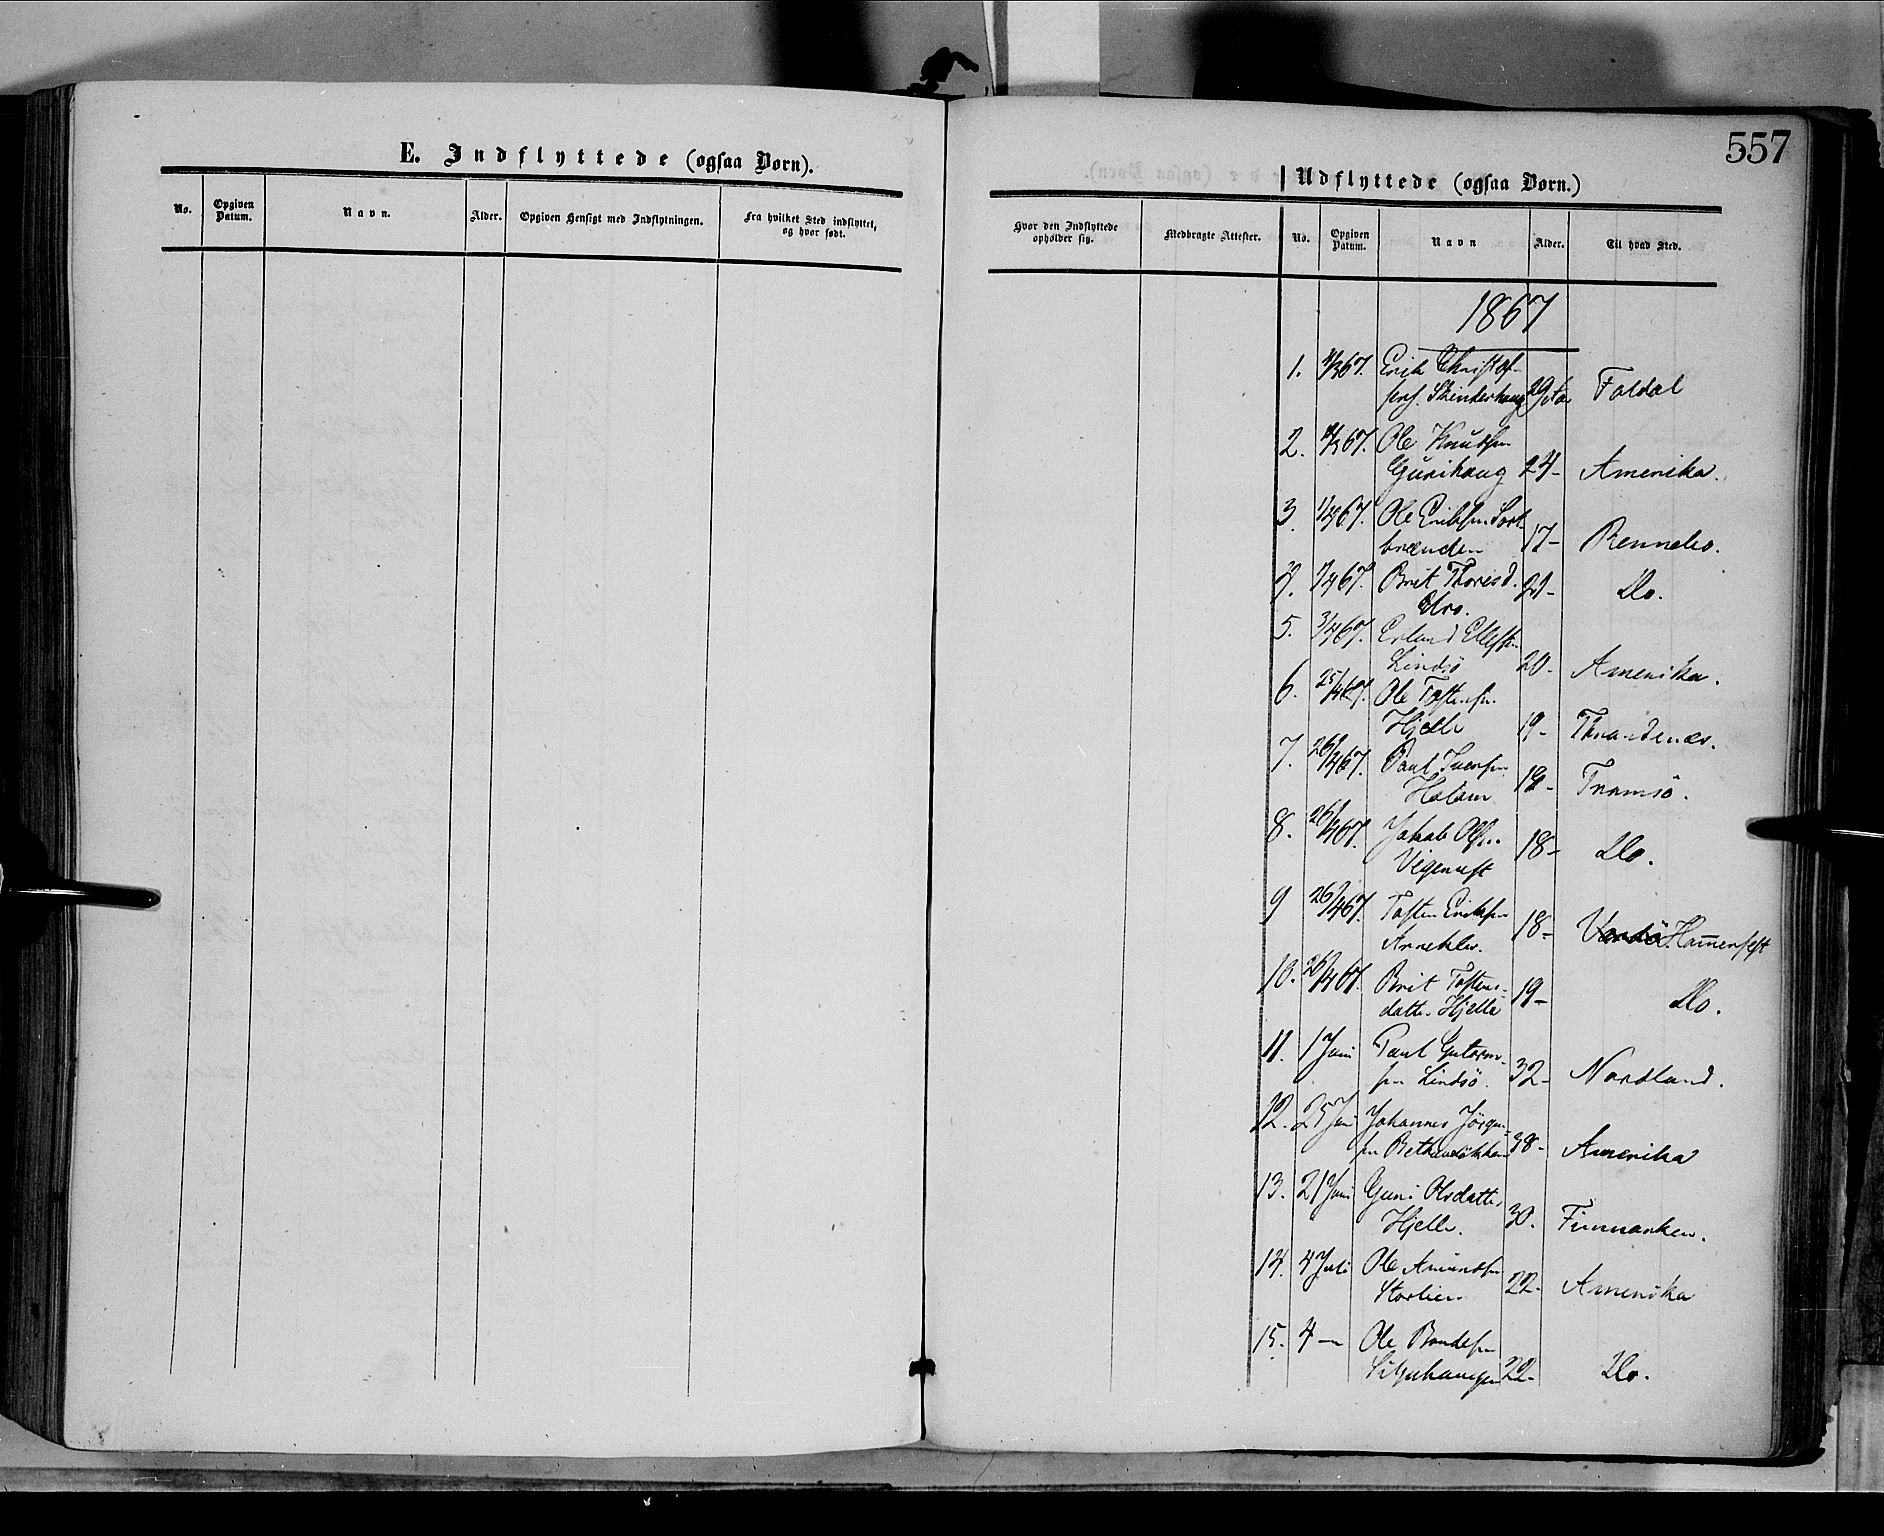 557
E. Indflyttede (ogsaa Børn).
No.
Opgiven
Datum.
Navn.
Alder.
Opgiven Hensigt med Indflytningen.
Fra hvilket Sted indflyttet,
og hvor født.
Udflyttede (ogsaa Børn.)
Hvor den Indflyttede
opholder sig.
Medbragte Attester.
No.
Opgiven
Datum.
Navn
Alder.
Til hvad Sted.
1867
1. Erik Christof-
29 Foldal
2. Ole Knudsen
Gurihaug 24- Amerika.
3. Ole Eriksen
brænden 17- Rennebo.
4. Brit Thoresd.
21- Do.
5. Erland
Lindsö 20- Amerika.
6. 25/4 67. Ole Tostensen
Hjelle 19- Thrandenæs.
7. 26/4 67. Paul Iversen
18- Tromsö.
8. 26/4 67. Jakob Olsen
18- Do.
9 26/4 67. Tosten Eriksen
18- Vardö Hamerfest
10. 26/4 67. Brit Tostens-
datter Hjelle 19- Do.
11. 1 Juni Paul Guttorm-
sen Lindsö. 32- Nordland.
12. 25 Juni Johannes Jörgen-
sen 38- Amerika
13. 21 Juni Guri Olsdatter
Hjelle. 30. Finmarken.
14. 4 Juli Ole Amundsen
Storlien 22- Amerika
15. 4 — Ole Bondesen
22- Do.